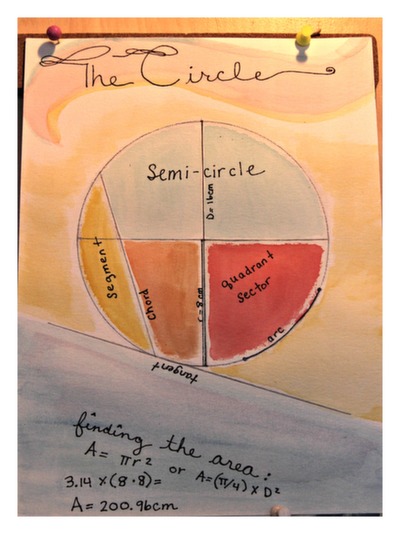 The Circle
Semi-circle
D=16cm
Segment
Chord
r=8cm
quadrant
Sector
arc
tangent
finding the area:
A= πr² or A=(π/4) x D²
3.14 x(8·8)=
A= 200.96cm